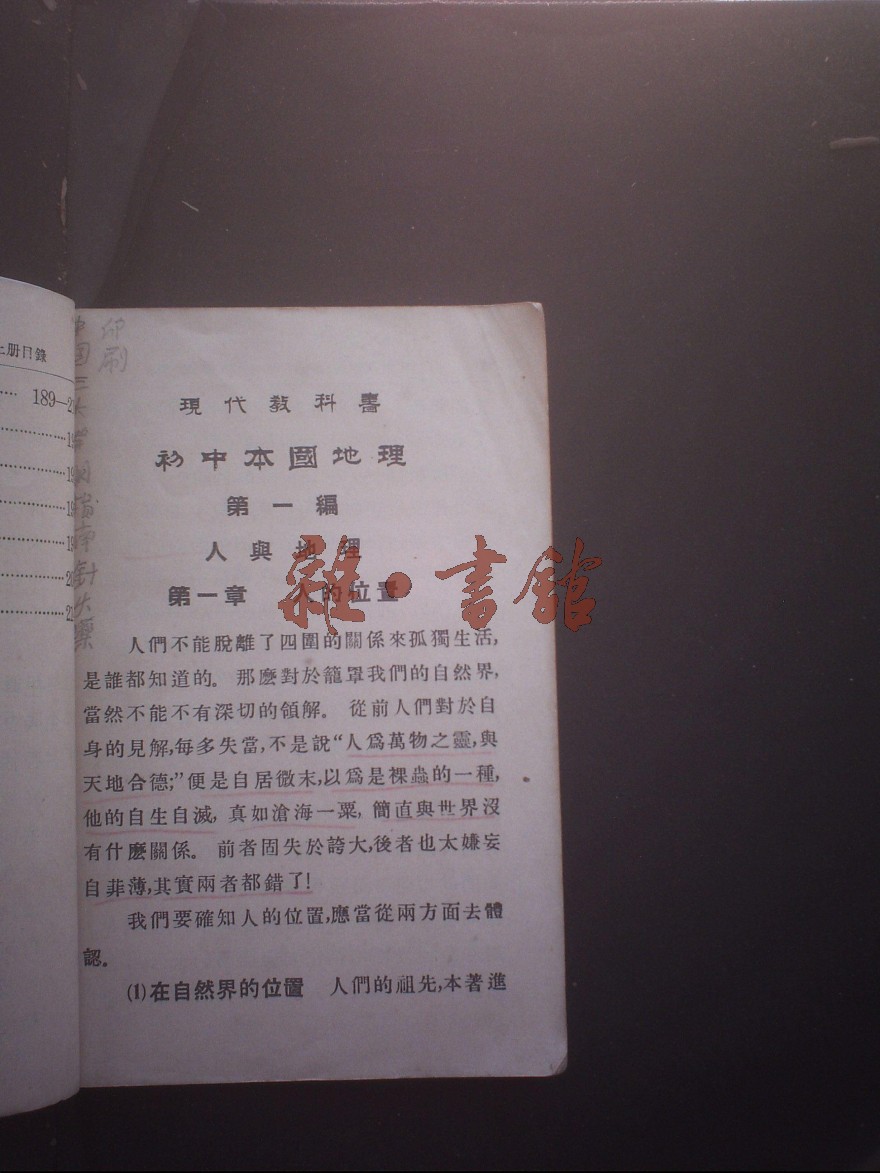 上册目錄
189—2
印刷
中国三大發明指南針火藥
現代教科書
初中本國地理
第一編
人與地理
第一章 人的位置
人們不能脫離了四圍的關係來孤獨生活,
是誰都知道的。那麽對於籠罩我們的自然界,
當然不能不有深切的領解。從前人們對於自
身的見解,每多失當,不是說“人爲萬物之靈,與
天地合德;”便是自居微末,以爲是裸蟲的一種,
他的自生自滅,真如滄海一粟,簡直與世界沒
有什麽關係。前者固失於誇大,後者也太嫌妄
自菲薄,其實兩者都錯了!
我們要確知人的位置,應當從兩方面去體
認。
(1)在自然界的位置 人們的祖先,本著進
雜·書館